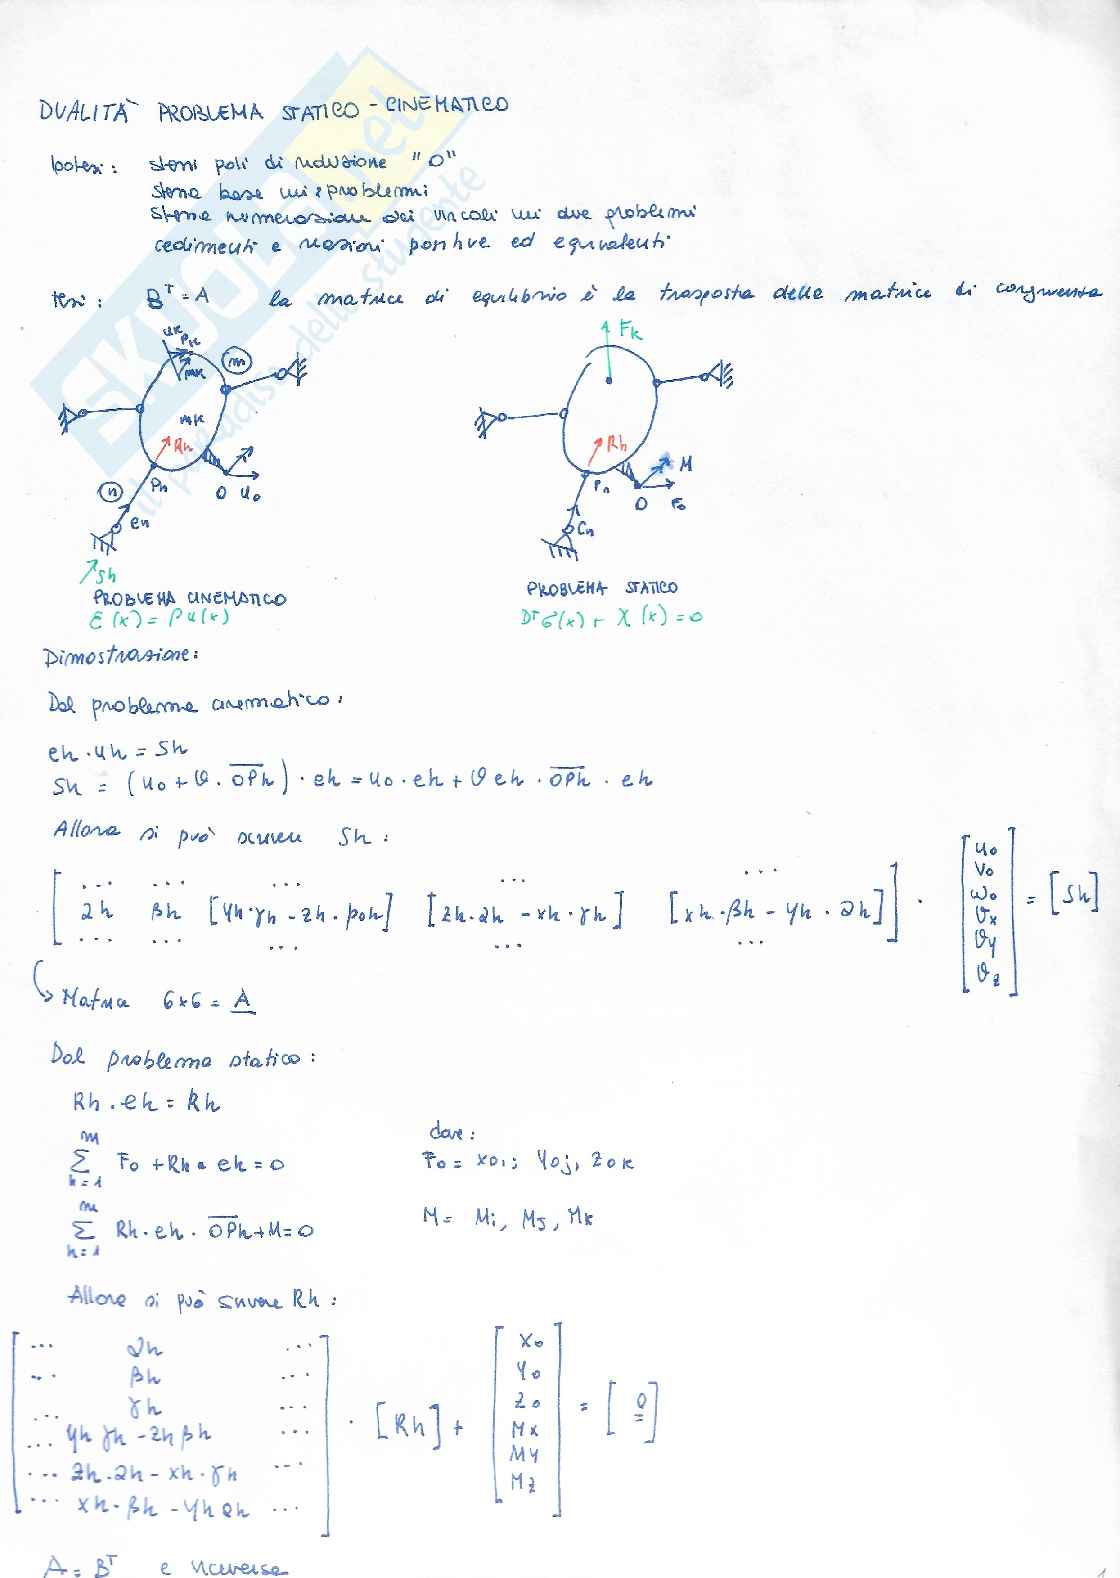 DUALITÀ PROBLEMA STATICO - CINEMATICO
Ipotesi: stessi poli di riduzione "O"
stessa base nei 2 problemi
stessa numerazione dei vincoli nei due problemi
cedimenti e reazioni positive ed equivalenti
tesi: Bᵀ = A la matrice di equilibrio è la trasposta della matrice di congruenza
uk
Pk
mk
m
mk
Rh
Pn
n
O uo
en
Sh
PROBLEMA CINEMATICO
Fk
Rh
Pn
M
O Fo
Cn
PROBLEMA STATICO
Dᵀσ(x) + X(x) = 0
Dimostrazione:
Dal problema cinematico:
eh · uh = Sh
Sh = (uo + θ · OPh) · eh = uo · eh + θ eh · OPh · eh
Allora si può scrivere Sh:
[ ... ... ... ... ...
αh βh [yh·γh - zh·βoh] [zh·αh - xh·γh] [xh·βh - yh·αh] ] · [uo vo ωo θx θy θz] = [Sh]
... ... ... ... ...
Matrice 6x6 = A
Dal problema statico:
Rh · eh = Rh
m
Σ Fo + Rh · eh = 0
h = 1
dove:
Fo = xoi; yoj, zok
m
Σ Rh · eh · OPh + M = 0
h = 1
M = Mi, Mj, Mk
Allora si può scrivere Rh:
... αh ... xo
... βh ... yo
... γh ... zo
... yh γh - zh βh ... · [Rh] + Mx = [0]
... zh·αh - xh·γh ... My
... xh·βh - yh αh ... Mz
A = Bᵀ e viceversa
1